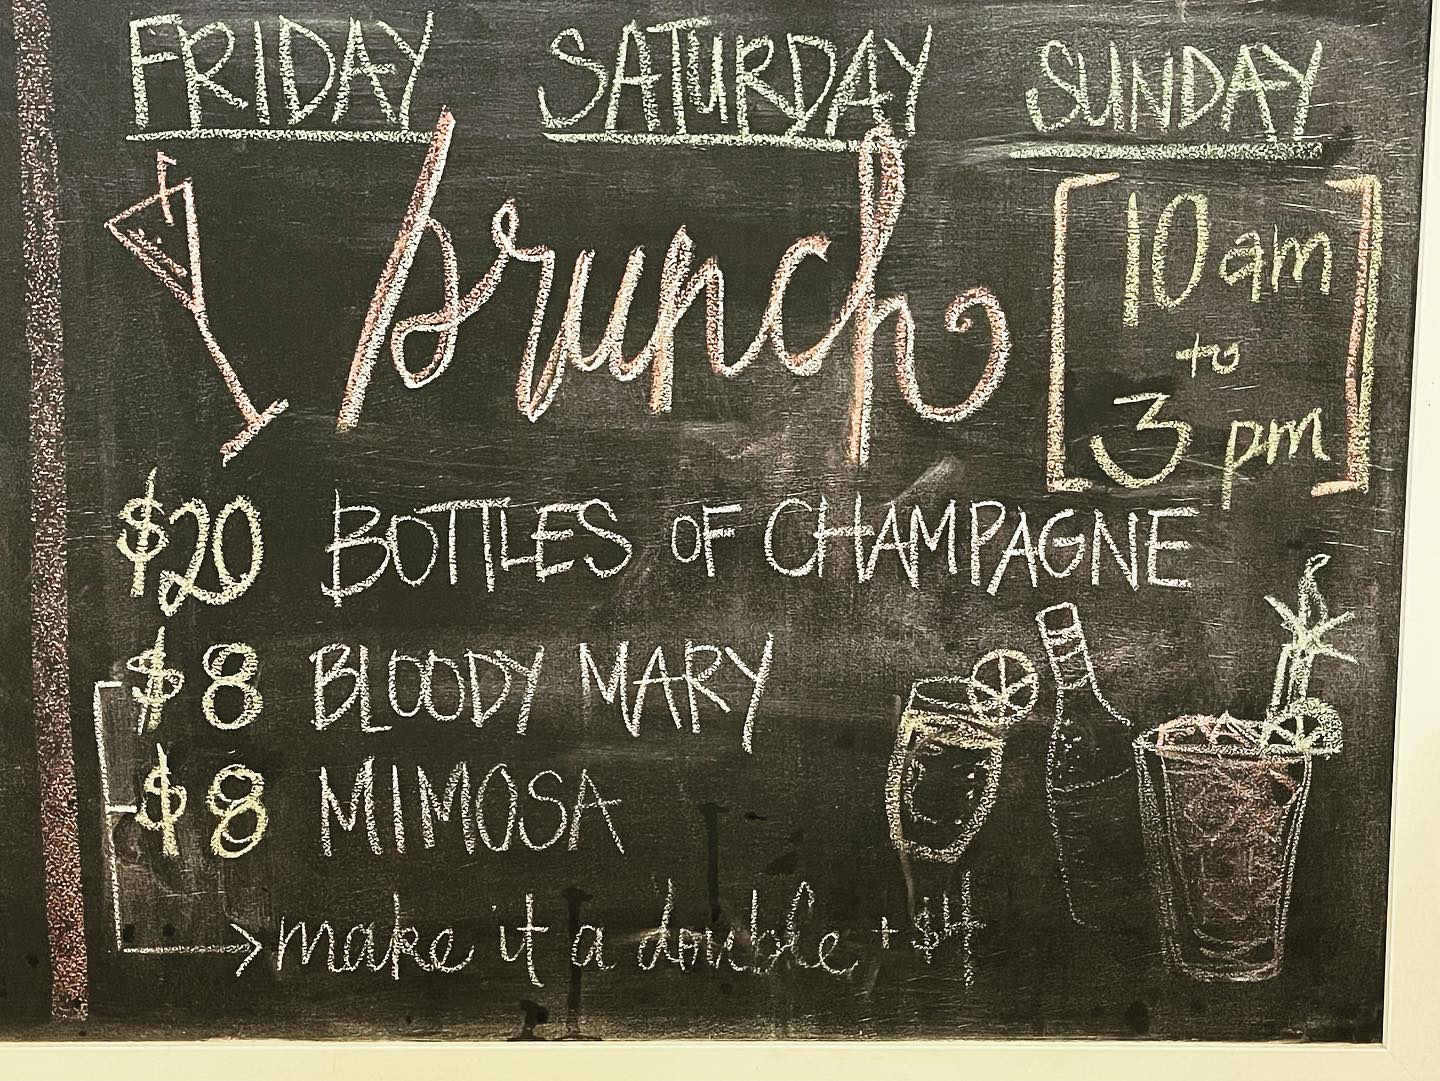 FRIDAY SATURDAY SUNDAY
brunch
10 am
to
3 pm
$20 BOTTLES OF CHAMPAGNE
$8 BLOODY MARY
$8 MIMOSA
make it a double + $4